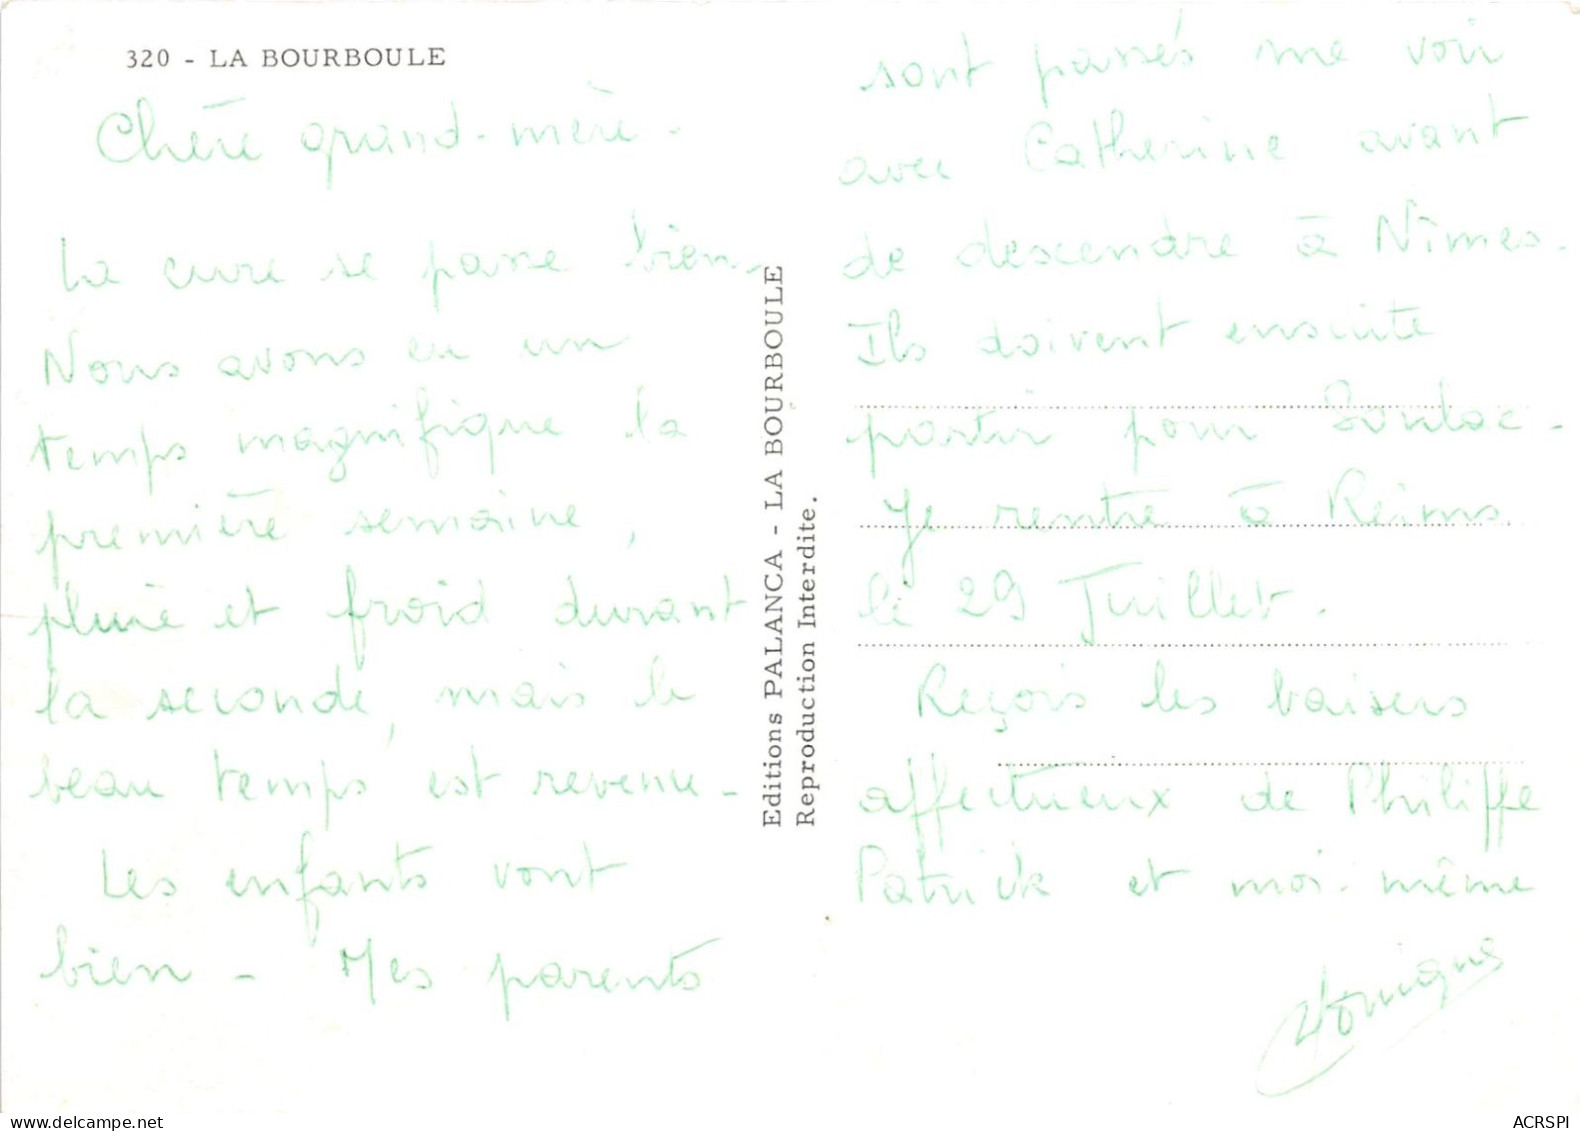 320 - LA BOURBOULE
Chère grand-mère -
La cure se passe bien -
Nous avons eu un
temps magnifique la
première semaine,
pluie et froid durant
la seconde, mais le
beau temps est revenu -
Les enfants vont
bien - Mes parents
Editions PALANCA - LA BOURBOULE
Reproduction Interdite.
sont passés me voir
avec Catherine avant
de descendre à Nîmes.
Ils doivent ensuite
partir pour Soulac -
Je rentre à Reims
le 29 Juillet.
Reçois les baisers
affectueux de Philippe
Patrick et moi-même
Monique
delcampe.net
ACRSPI